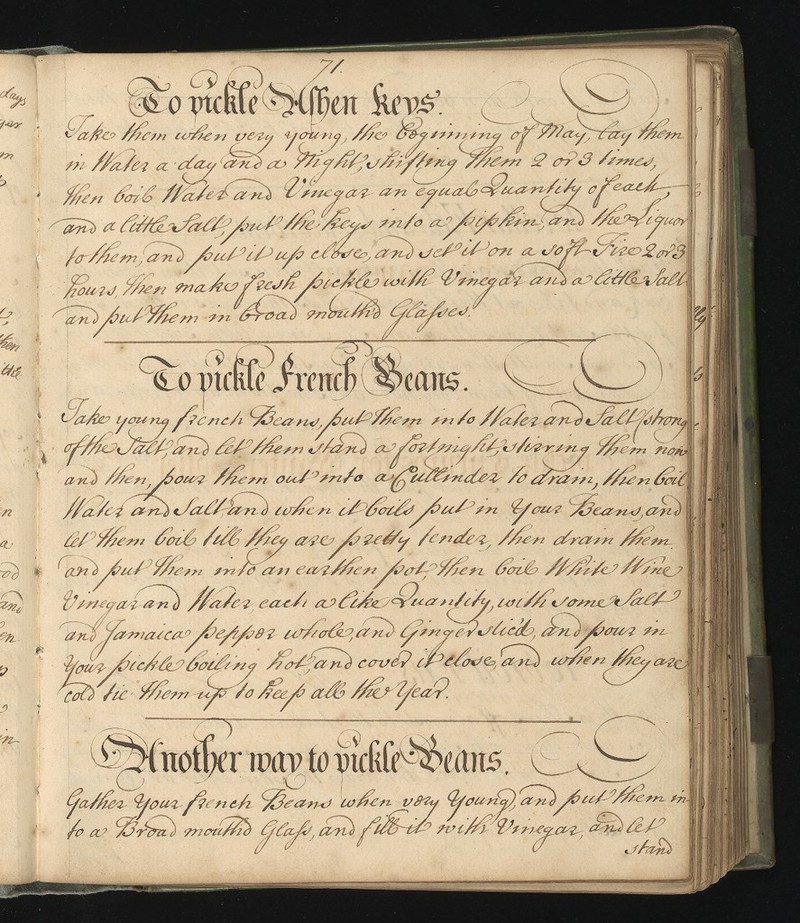 days
71.
To pickle Ashen Keys.
Take them when very young, the beginning of May, lay them
in Water a day and a Night, shifting them 2 or 3 times,
then boil Water and Vinegar an equal Quantity of each,
and a little Salt, put the keys into a pipkin, and the Liquor
to them, and put it up close, and set it on a soft Fire 2 or 3
hours, then make fresh pickle with Vinegar and a little Salt
and put them in broad mouth'd Glasses.
To pickle French Beans.
Take young french Beans, put them into Water and Salt (strong
of the Salt, and let them stand a fortnight, stirring them now
and then, pour them out into a Cullinder to drain, then boil
Water and Salt and when it boils put in your Beans, and
let them boil till they are pretty tender, then drain them
and put them into an earthen pot, then boil White Wine
Vinegar and Water each a like Quantity, with some Salt
and Jamaica pepper whole, and Ginger slic'd, and pour in
your pickle boiling hot, and cover it close, and when they are
cold tie them up to keep all the Year.
Another way to pickle Beans.
Gather Your french Beans when very Young, and put them in
to a Broad mouth'd Glass, and fill it with Vinegar, and let
stand